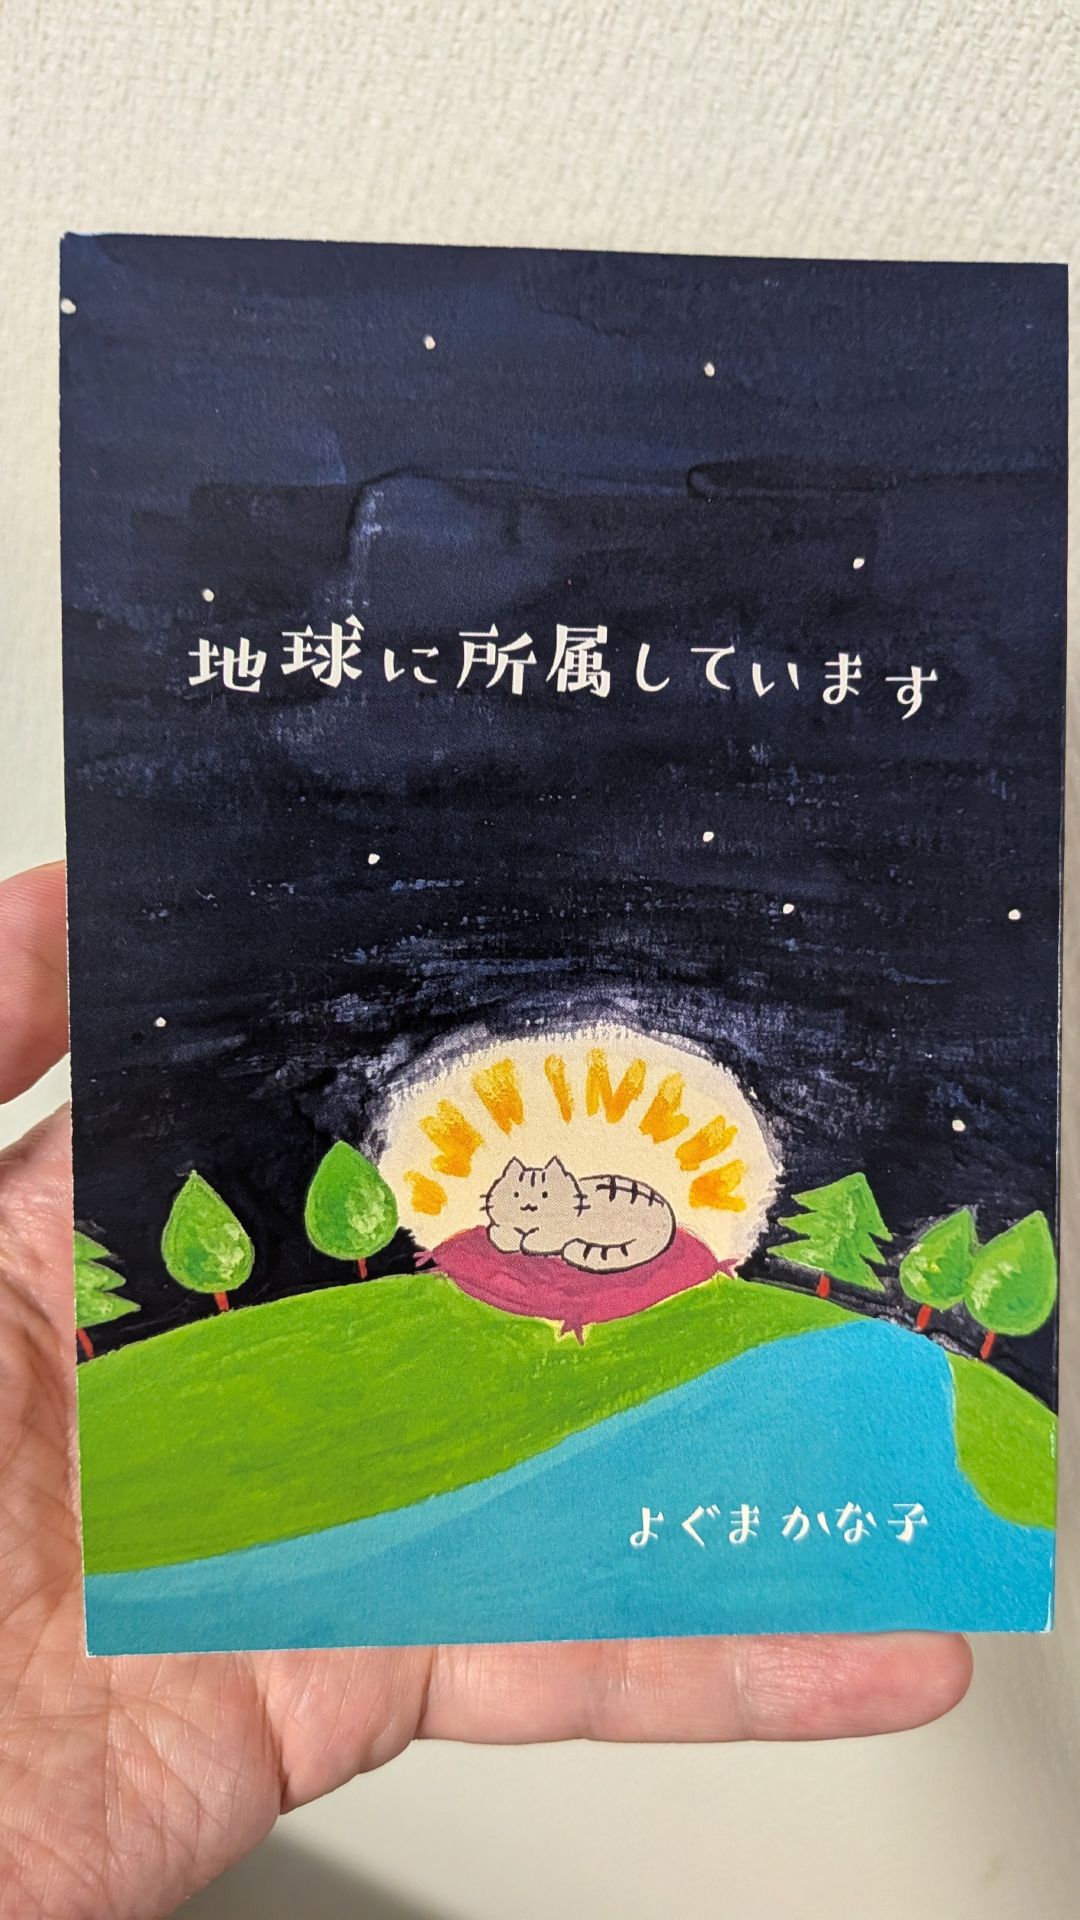 地球に所属しています
よぐまかな子